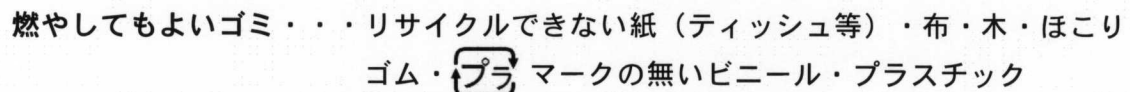 燃やしてもよいゴミ・・・リサイクルできない紙（ティッシュ等）・布・木・ほこり
ゴム・プラ マークの無いビニール・プラスチック